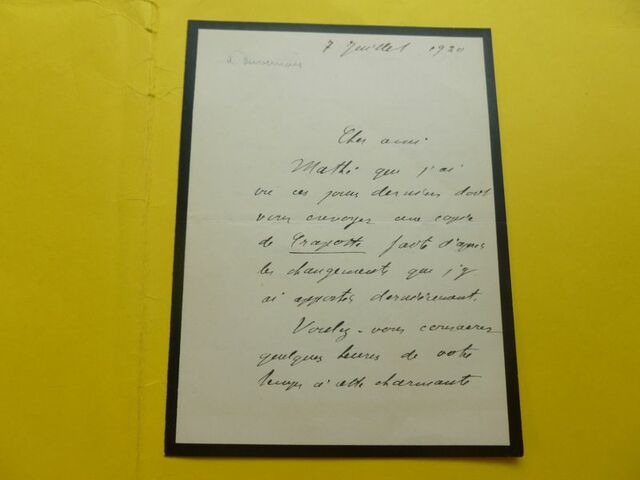 7 Juillet 1920
Cher ami
Mathé que j'ai
vu ces jours derniers doit
vous envoyer une copie
de faite d'après
les changements que j'y
ai apportés dernièrement.
Voulez-vous consacrer
quelques heures de votre
temps à cette charmante